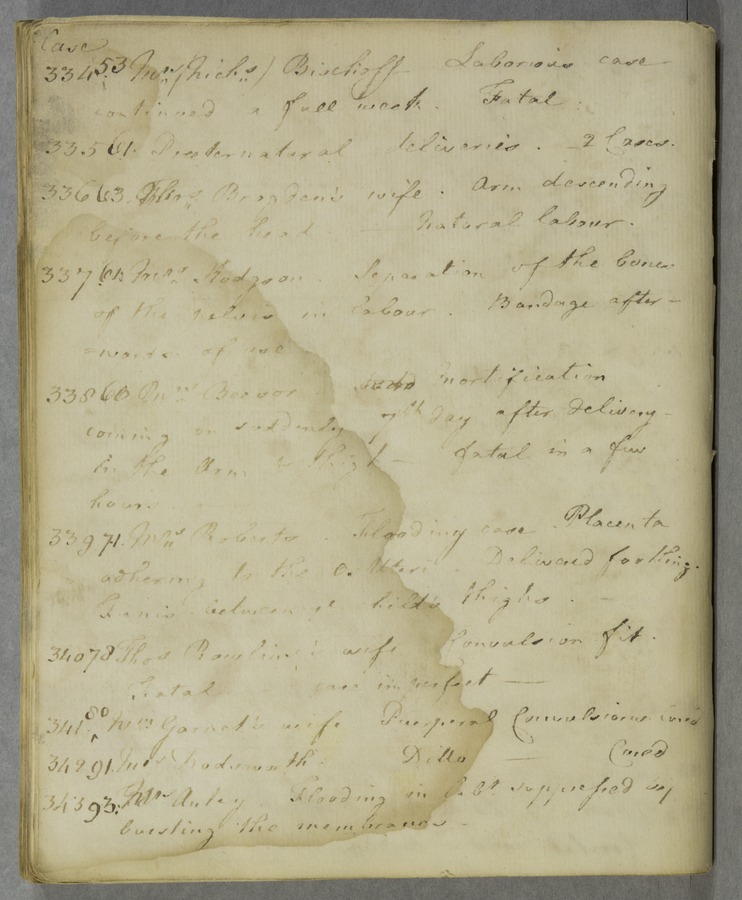 Case
334. 53 Mrs (Nichs) Bischoff Laborious case
continued a full week. Fatal.
335. 61. Preternatural deliveries. 2 Cases.
336 63. Thos Bragden's wife. Arm descending
before the head — Natural labour.
337 Mrs Hodgson. Separation of the bones
of the pelvis in labour. Bandage after-
=wards of use
338 60 Mrs Beevor mortification
coming on suddenly 7th day after delivery-
in the Arm & thigh — fatal in a few
hours.
339 71. Mrs Roberts. Flooding case. Placenta
adhering to the Uteri. Delivered footling.
Funis between ye child's thighs. —
340 78 Thos Rawline's wife Convulsion fit.
Fatal case imperfect —
341. 80 Wm Garnet's wife Puerperal Convulsions cured
342 91. Mrs Wadsworth. Ditto — Cured
343 93. Mrs Auley. Flooding in labr suppressed by
bursting the membranes —